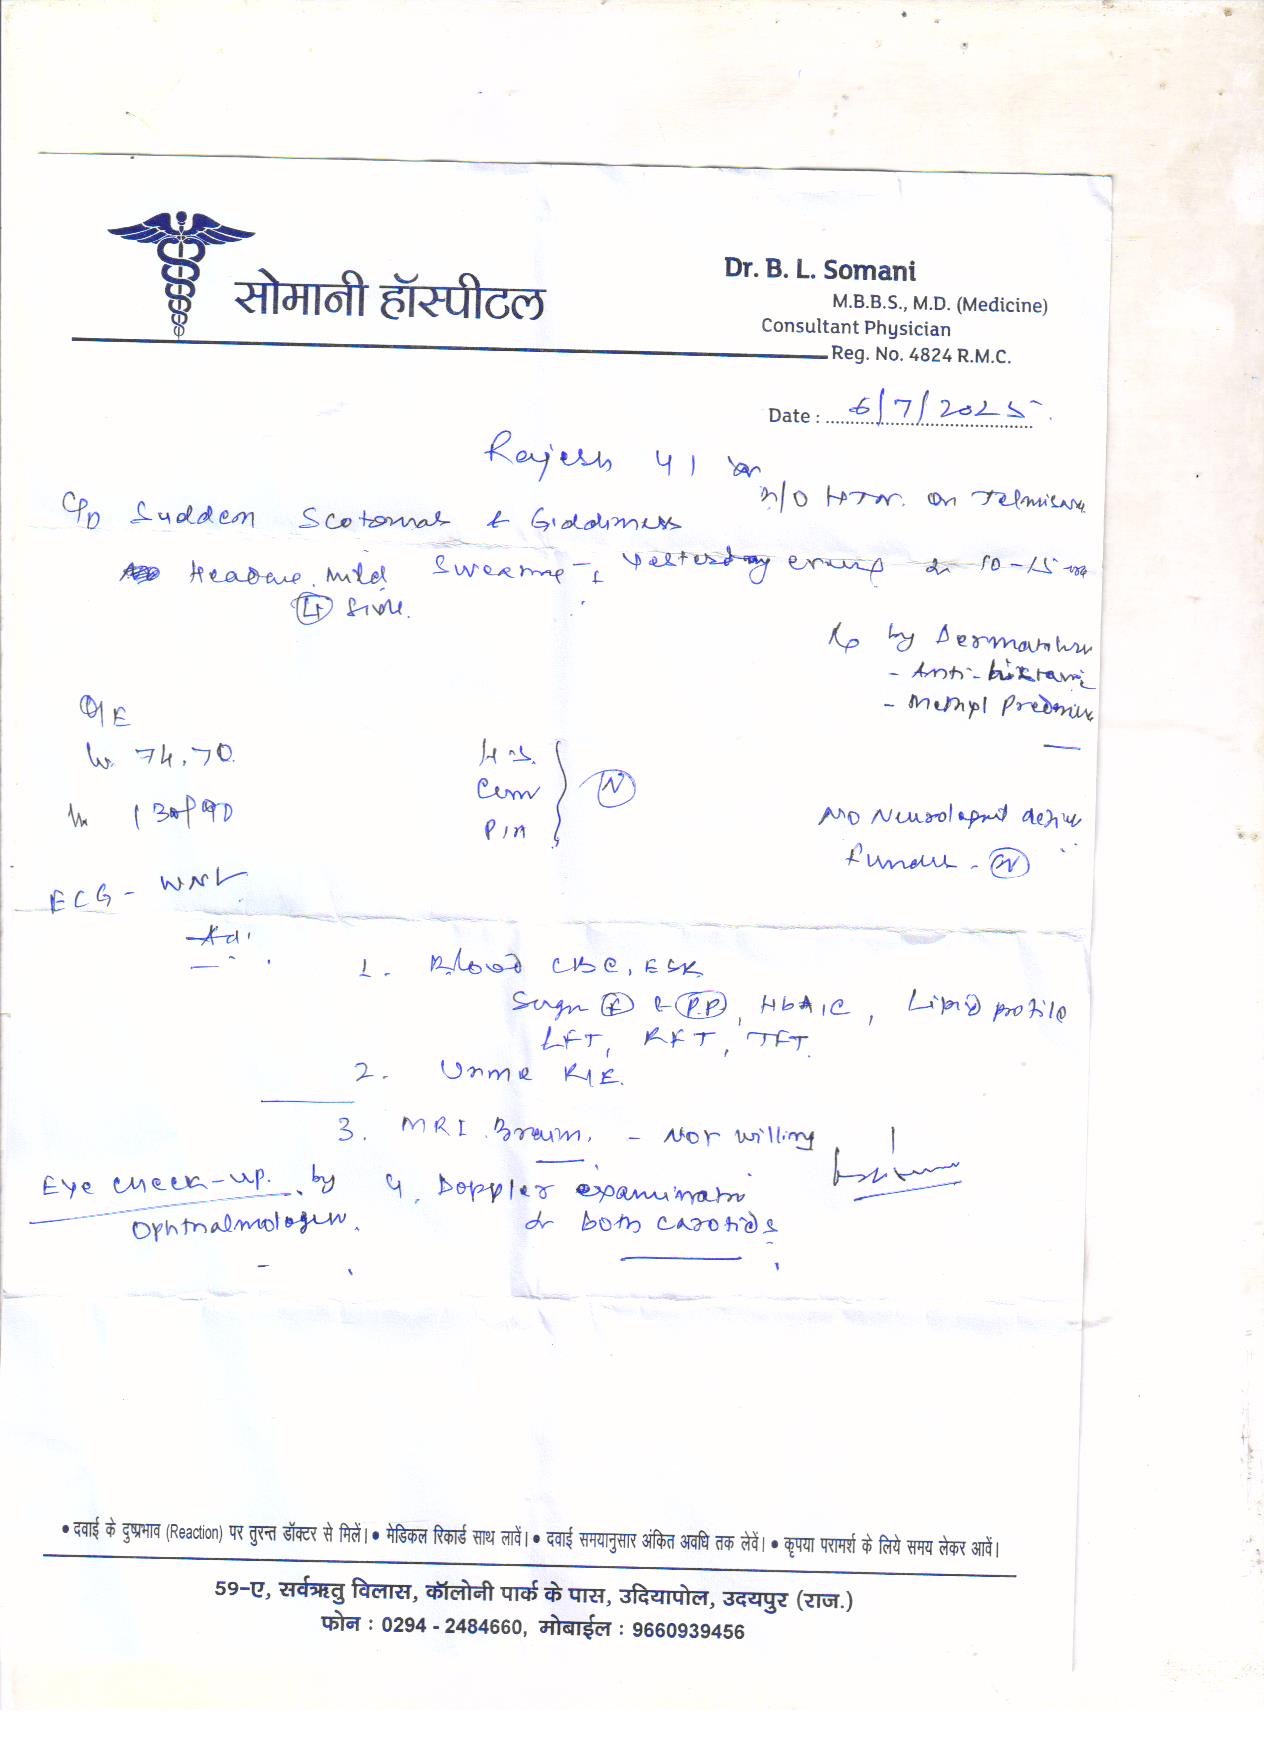 सोमानी हॉस्पीटल
Dr. B. L. Somani
M.B.B.S., M.D. (Medicine)
Consultant Physician
Reg. No. 4824 R.M.C.
Date : 6/7/2025
Rajesh 41
H/O HTN. on
C/o Sudden Scotomas & Giddiness
Headache. mild Yesterday evening 10-15
(Lt) side.
by
- Anti-
- Methyl
O/E
74, 70.
130/90
H.S.
P/A
(N)
No Neurological
Fundus - (N)
ECG - WNL
Ad.
1. Blood CBC, ESR
Sugar (F) & (P.P), HbA1C, Lipid profile
LFT, RFT, TFT.
2. Urine R/E.
3. MRI Brain. - Not willing
Eye check-up. by
Ophthalmologist.
4. Doppler examination
both carotids
• दवाई के दुष्प्रभाव (Reaction) पर तुरन्त डॉक्टर से मिलें। • मेडिकल रिकार्ड साथ लावें। • दवाई समयानुसार अंकित अवधि तक लेवें। • कृपया परामर्श के लिये समय लेकर आवें।
59-ए, सर्वऋतु विलास, कॉलोनी पार्क के पास, उदियापोल, उदयपुर (राज.)
फोन : 0294 - 2484660, मोबाईल : 9660939456